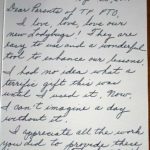 Dear Parents of T.H. PTO,
I love, love, love our
new Ladybugs! They are
easy to use and a wonderful
tool to enhance our lessons.
I had no idea what a
terrific gift this was
until I used it. Now,
I can't imagine a day
without it!
I appreciate all the work
you did to provide these